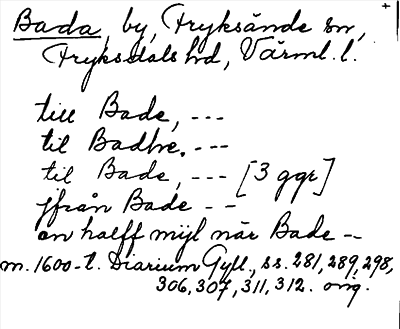 Bada, by, Fryksände sn,
Fryksdals hd, Värml. l.
till Bade, ---
til Badhe, ---
til Bade, --- [3 ggr]
ifrån Bade --
en halff mijl när Bade --
m. 1600-t. Diarium Gyll., ss. 281, 289, 298,
306, 307, 311, 312. orig.